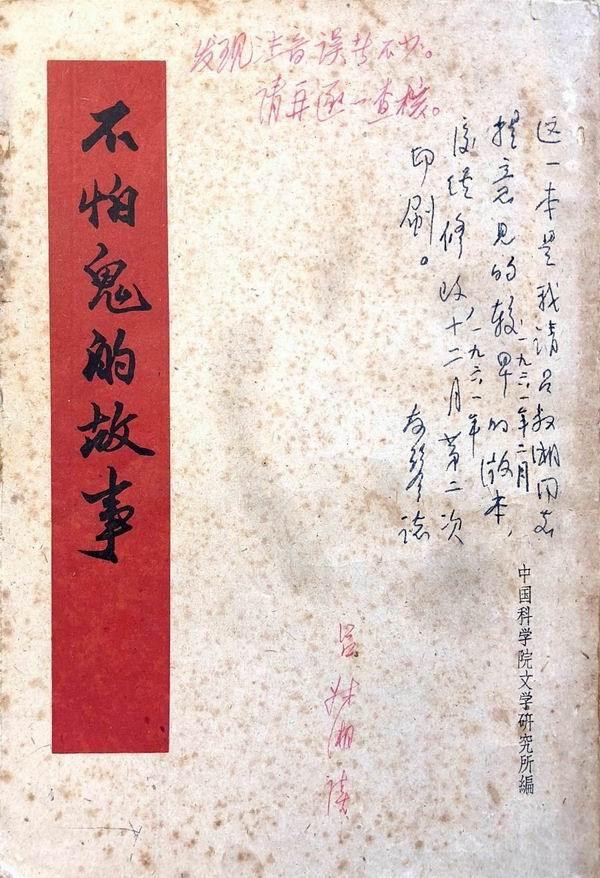 发现注音误者不少。
请再逐一查核。
不怕鬼的故事
这一本是我请吕叔湘同志
一九六一年二月
提意见的较早的版本，
一九六一年
後经修改十二月第二次
印刷。
友琴誌
中国科学院文学研究所編
吕叔湘读